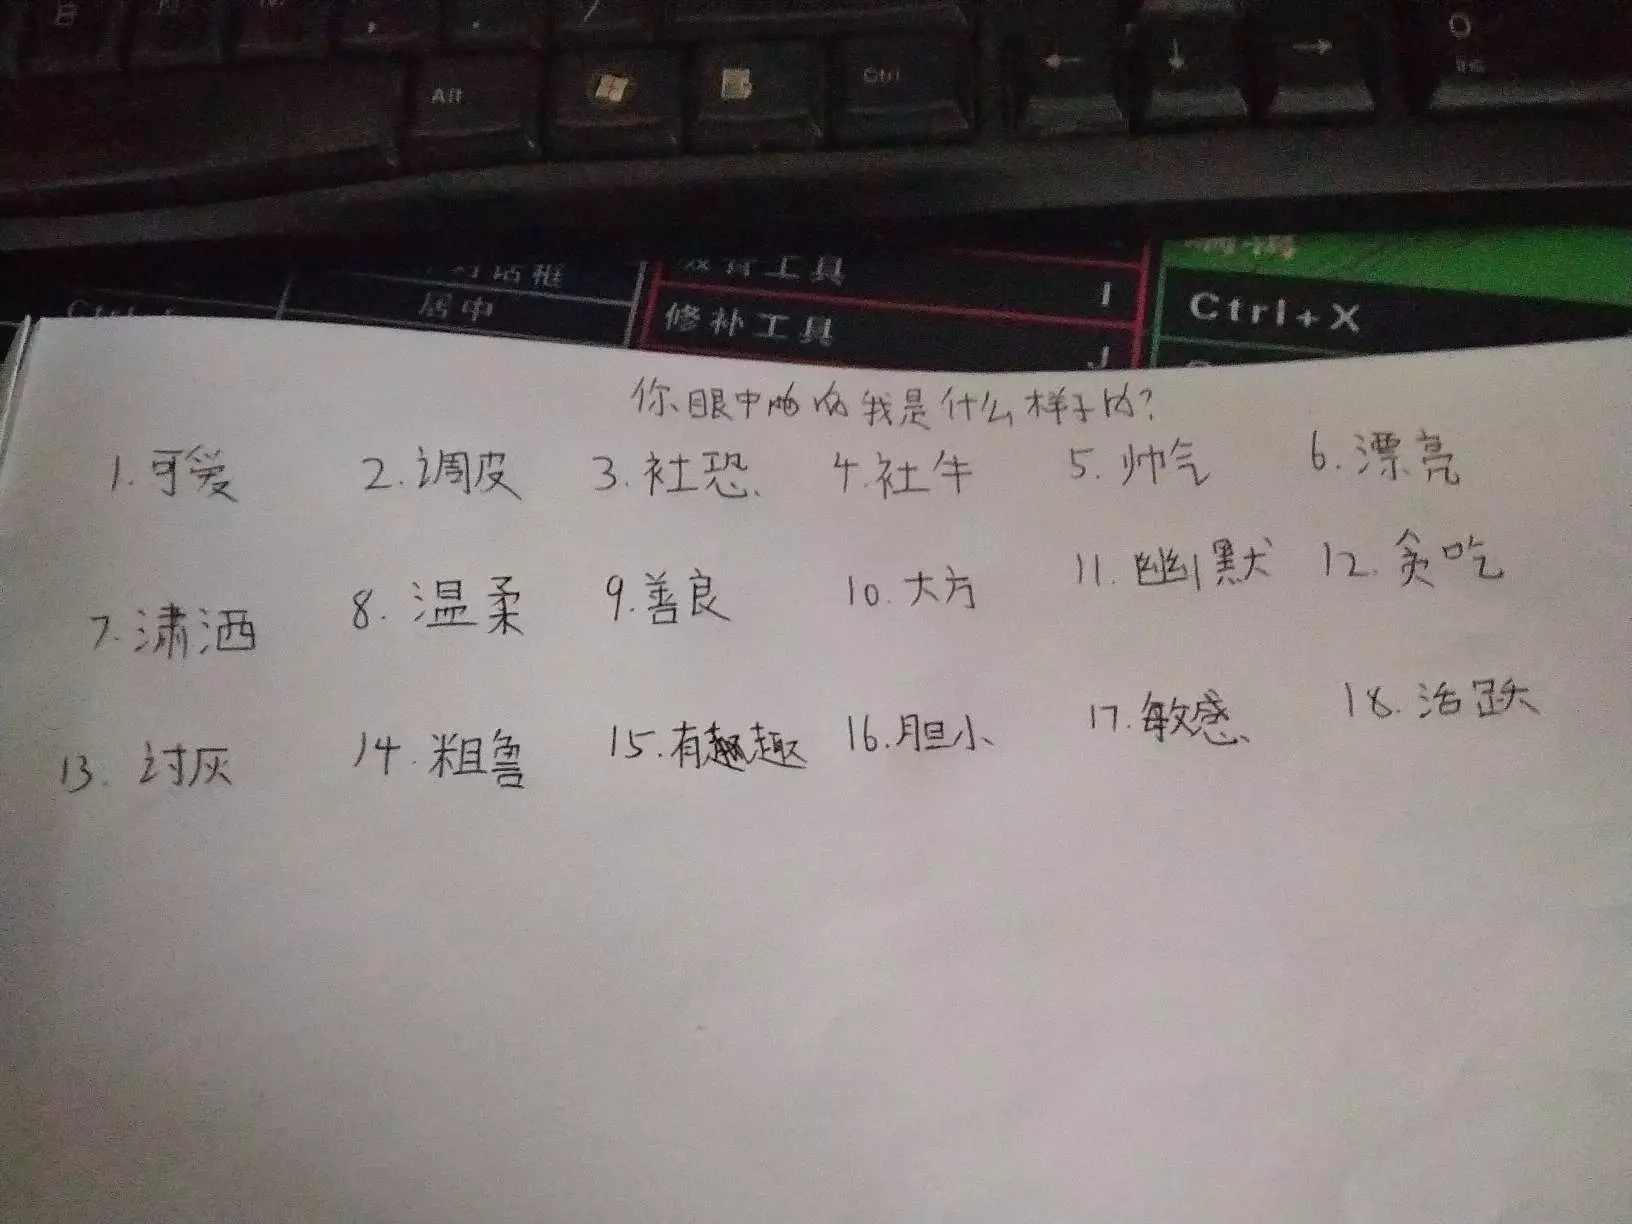 Alt Ctrl ← ↓ → 0
居中 修补工具 工具 I
J Ctrl+X
你眼中的我是什么样子的?
1.可爱 2.调皮 3.社恐 4.社牛 5.帅气 6.漂亮
7.潇洒 8.温柔 9.善良 10.大方 11.幽默 12.贪吃
13.讨灰 14.粗鲁 15.有趣 16.胆小 17.敏感 18.活跃